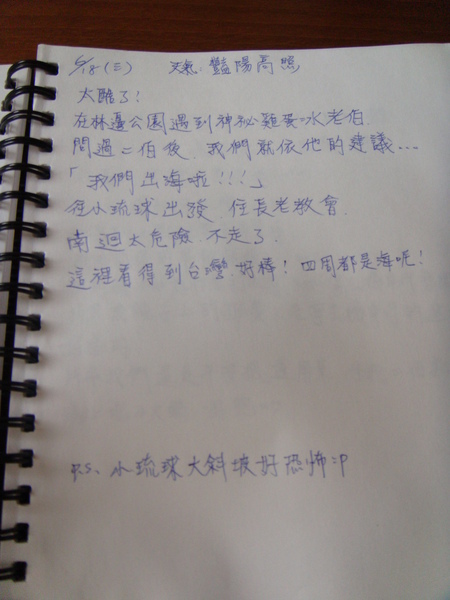 6/18 (三) 天氣: 豔陽高照
太酷了!
在林邊公園遇到神祕雞蛋冰老伯.
問過二伯後, 我們就依他的建議...
「我們出海啦!!!」
往小琉球出發 住長老教會.
南迴太危險 不走了.
這裡看得到台灣.好棒! 四周都是海呢!
P.S. 小琉球大斜坡好恐怖:P